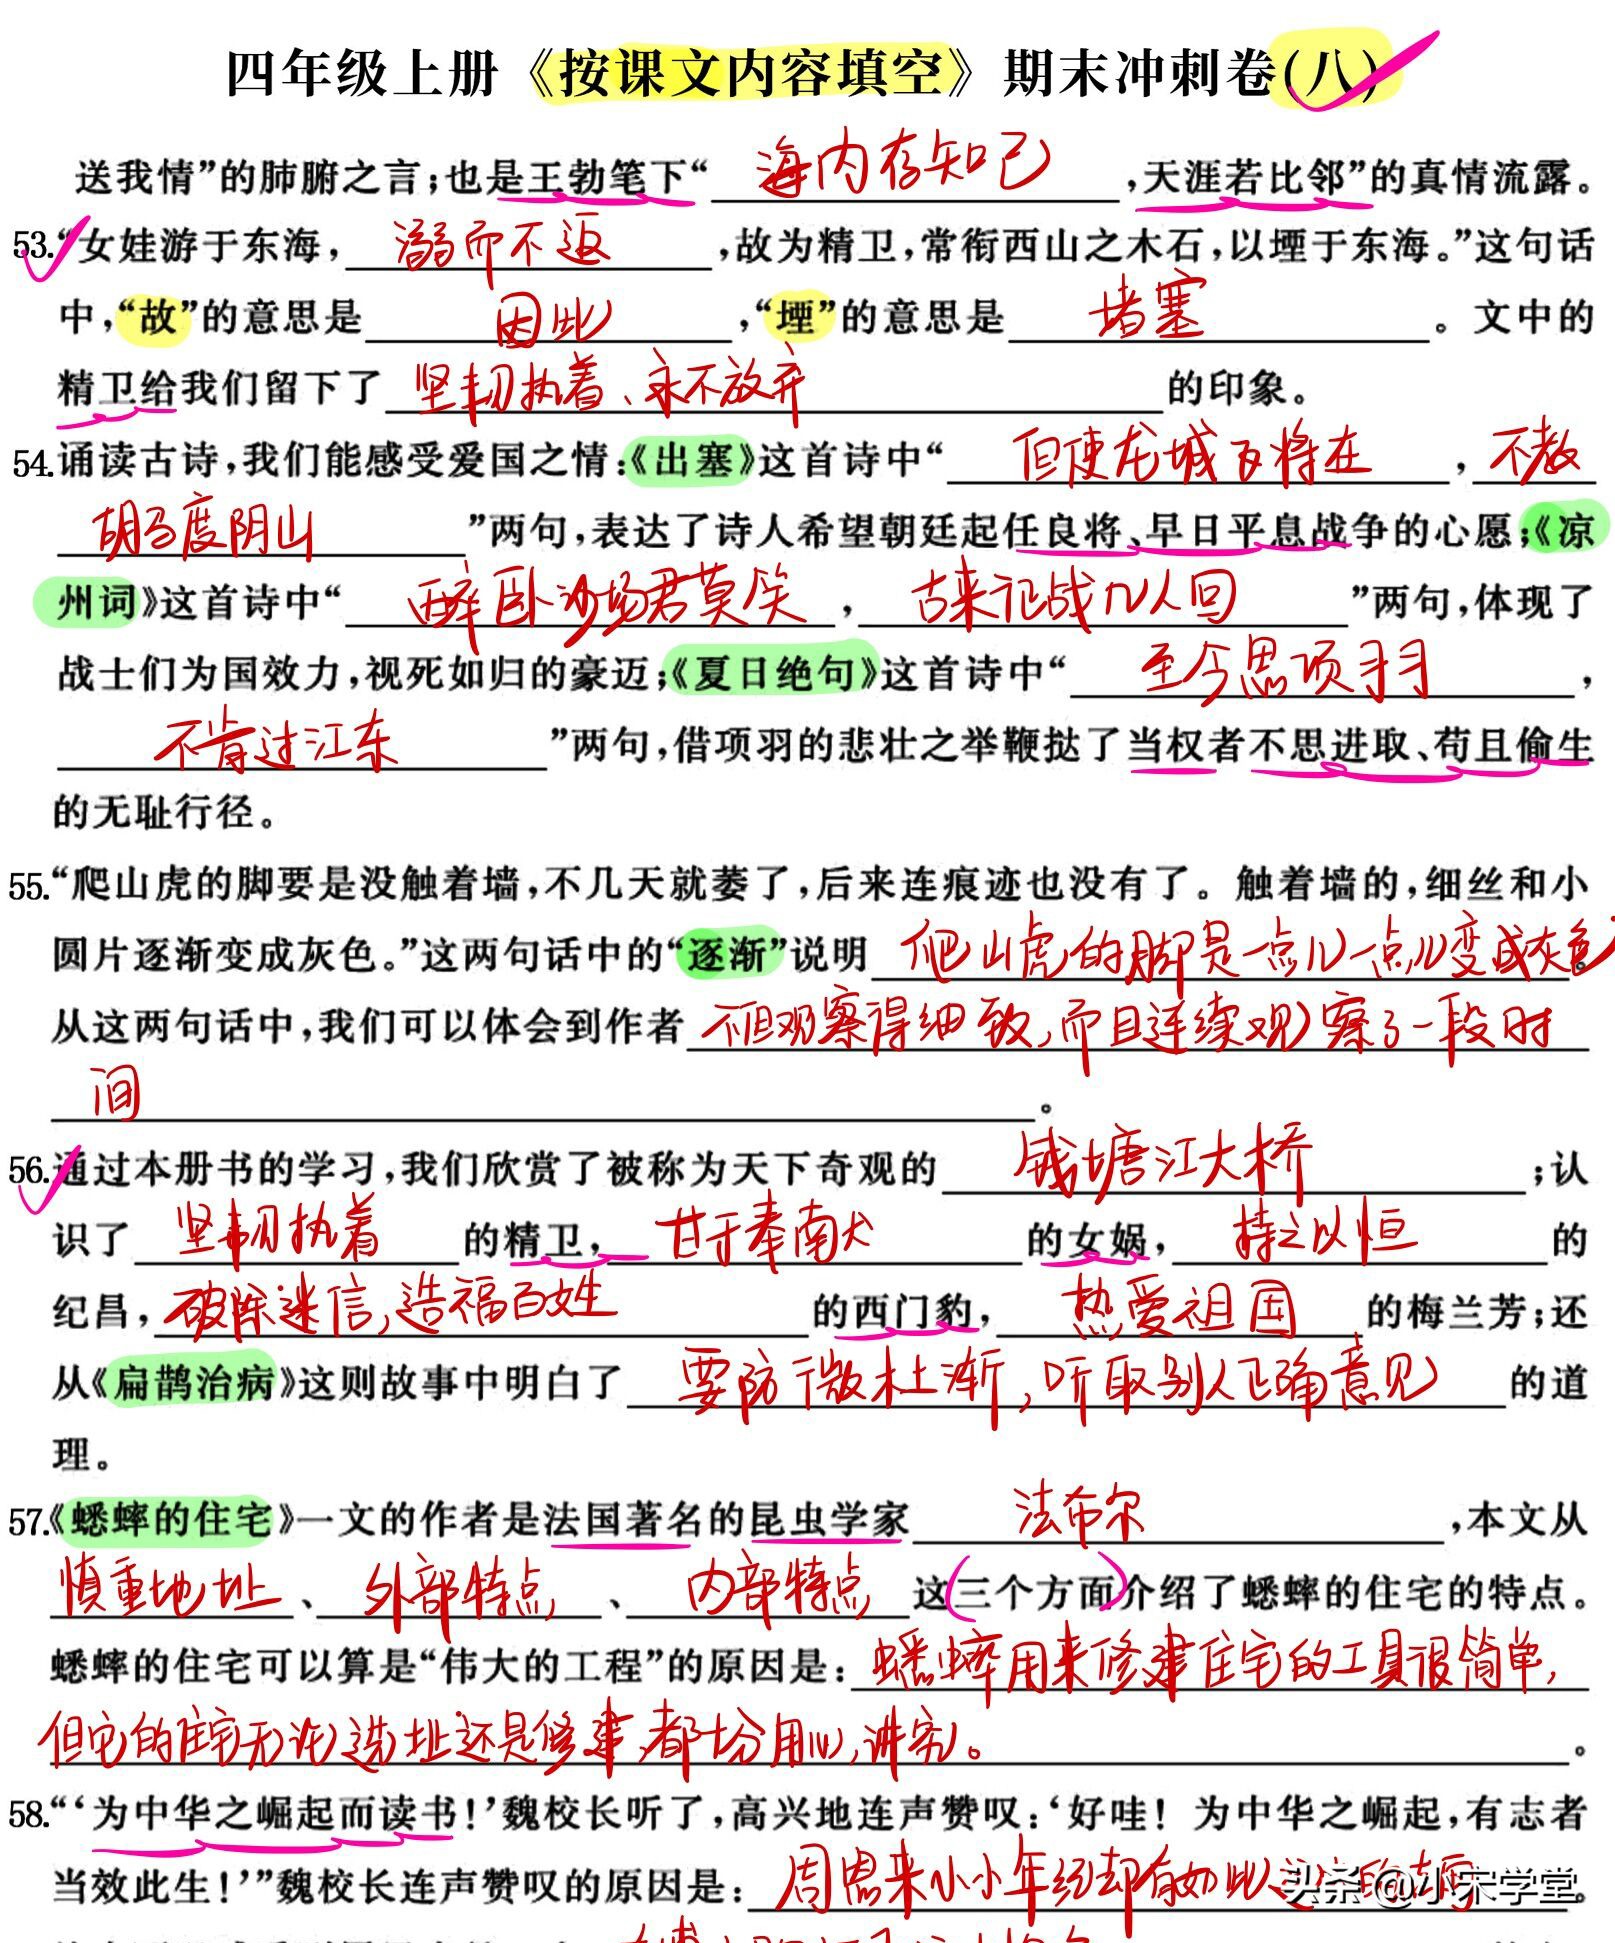 四年级上册《按课文内容填空》期末冲刺卷(八)
送我情”的肺腑之言;也是王勃笔下“海内存知己,天涯若比邻”的真情流露。
53.“女娃游于东海,溺而不返,故为精卫,常衔西山之木石,以堙于东海。”这句话
中,“故”的意思是因此,“堙”的意思是堵塞。文中的
精卫给我们留下了坚韧执着、永不放弃的印象。
54.诵读古诗,我们能感受爱国之情:《出塞》这首诗中“但使龙城飞将在,不教
胡马度阴山”两句,表达了诗人希望朝廷起任良将、早日平息战争的心愿;《凉
州词》这首诗中“醉卧沙场君莫笑,古来征战几人回”两句,体现了
战士们为国效力,视死如归的豪迈;《夏日绝句》这首诗中“至今思项羽,
不肯过江东”两句,借项羽的悲壮之举鞭挞了当权者不思进取、苟且偷生
的无耻行径。
55.“爬山虎的脚要是没触着墙,不几天就萎了,后来连痕迹也没有了。触着墙的,细丝和小
圆片逐渐变成灰色。”这两句话中的“逐渐”说明爬山虎的脚是一点儿一点儿变成灰色。
从这两句话中,我们可以体会到作者不但观察得细致,而且连续观察了一段时
间。
56.通过本册书的学习,我们欣赏了被称为天下奇观的钱塘江大桥;认
识了坚韧执着的精卫,甘于奉献的女娲,持之以恒的
纪昌,破除迷信,造福百姓的西门豹,热爱祖国的梅兰芳;还
从《扁鹊治病》这则故事中明白了要防微杜渐,听取别人正确意见的道
理。
57.《蟋蟀的住宅》一文的作者是法国著名的昆虫学家法布尔,本文从
慎重地址、外部特点、内部特点这三个方面介绍了蟋蟀的住宅的特点。
蟋蟀的住宅可以算是“伟大的工程”的原因是:蟋蟀用来修建住宅的工具很简单,
但它的住宅无论选址还是修建,都十分用心,讲究。。
58.“‘为中华之崛起而读书!’魏校长听了,高兴地连声赞叹:‘好哇!为中华之崛起,有志者
当效此生!’”魏校长连声赞叹的原因是:周恩来小小年纪却有如此。
头条@小宋学堂